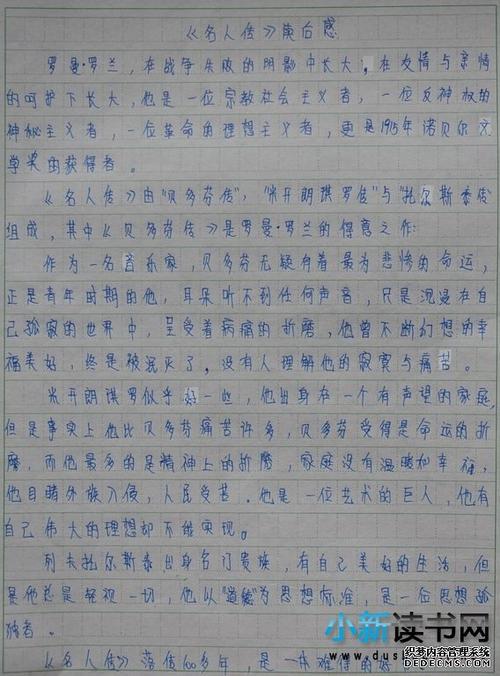 《名人传》读后感
罗曼·罗兰,在战争失败的阴影中长大,在友情与亲情
的呵护下长大,他是一位宗教社会主义者,一位反神权的
神秘主义者,一位革命的理想主义者,更是1915年诺贝尔文
学奖的获得者。
《名人传》由“贝多芬传”,“米开朗琪罗传”与“托尔斯泰传”
组成,其中《贝多芬传》是罗曼·罗兰的得意之作:
作为一名音乐家,贝多芬无疑有着最为悲惨的命运,
正是青年时期的他,耳朵听不到任何声音,只是沉漫在自
己孤寂的世界中,呈受着病痛的折磨,他曾不断幻想的幸
福美好,终是被泯灭了。没有人理解他的寂寞与痛苦。
米开朗琪罗似乎好一些,他出身在一个有声望的家庭,
但是事实上他比贝多芬痛苦许多,贝多芬受得是命运的折
磨,而他最多的是精神上的折磨,家庭没有温暖和幸福,
他目睹外族入侵,人民受苦。他是一位艺术的巨人,他有
自己伟大的理想却不能实现。
列夫托尔斯泰出身名门贵族,有自己美好的生活,但
是他总是轻视一切,他以“道德”为思想标准,是一位思想孤
独者。
《名人传》落传100多年,是一本难得的好
小新读书网
织梦内容管理系统